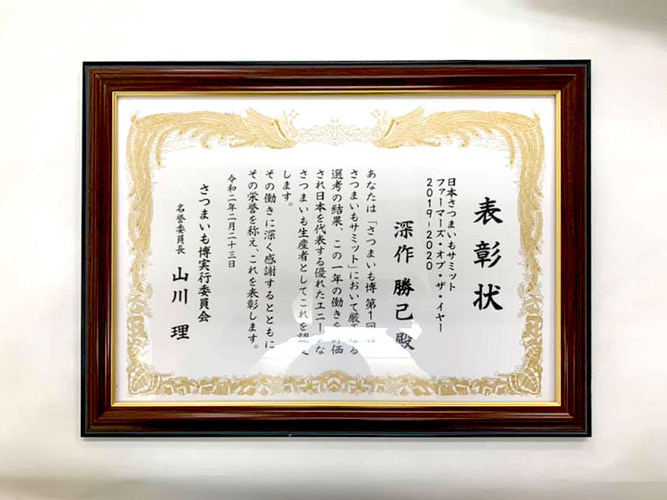 表彰状
日本さつまいもサミット
ファーマーズ・オブ・ザ・イヤー
2019-2020
深作 勝己 殿
あなたは「さつまいも博 第1回
さつまいもサミット」において厳
選考の結果、この一年の働きを 価
され日本を代表する優れたユニー な
さつまいも生産者としてこれを認
します。
その働きに深く感謝するとともに
その栄誉を称え、これを表彰します。
令和二年二月二十三日
さつまいも博実行委員会
名誉委員長 山川 理